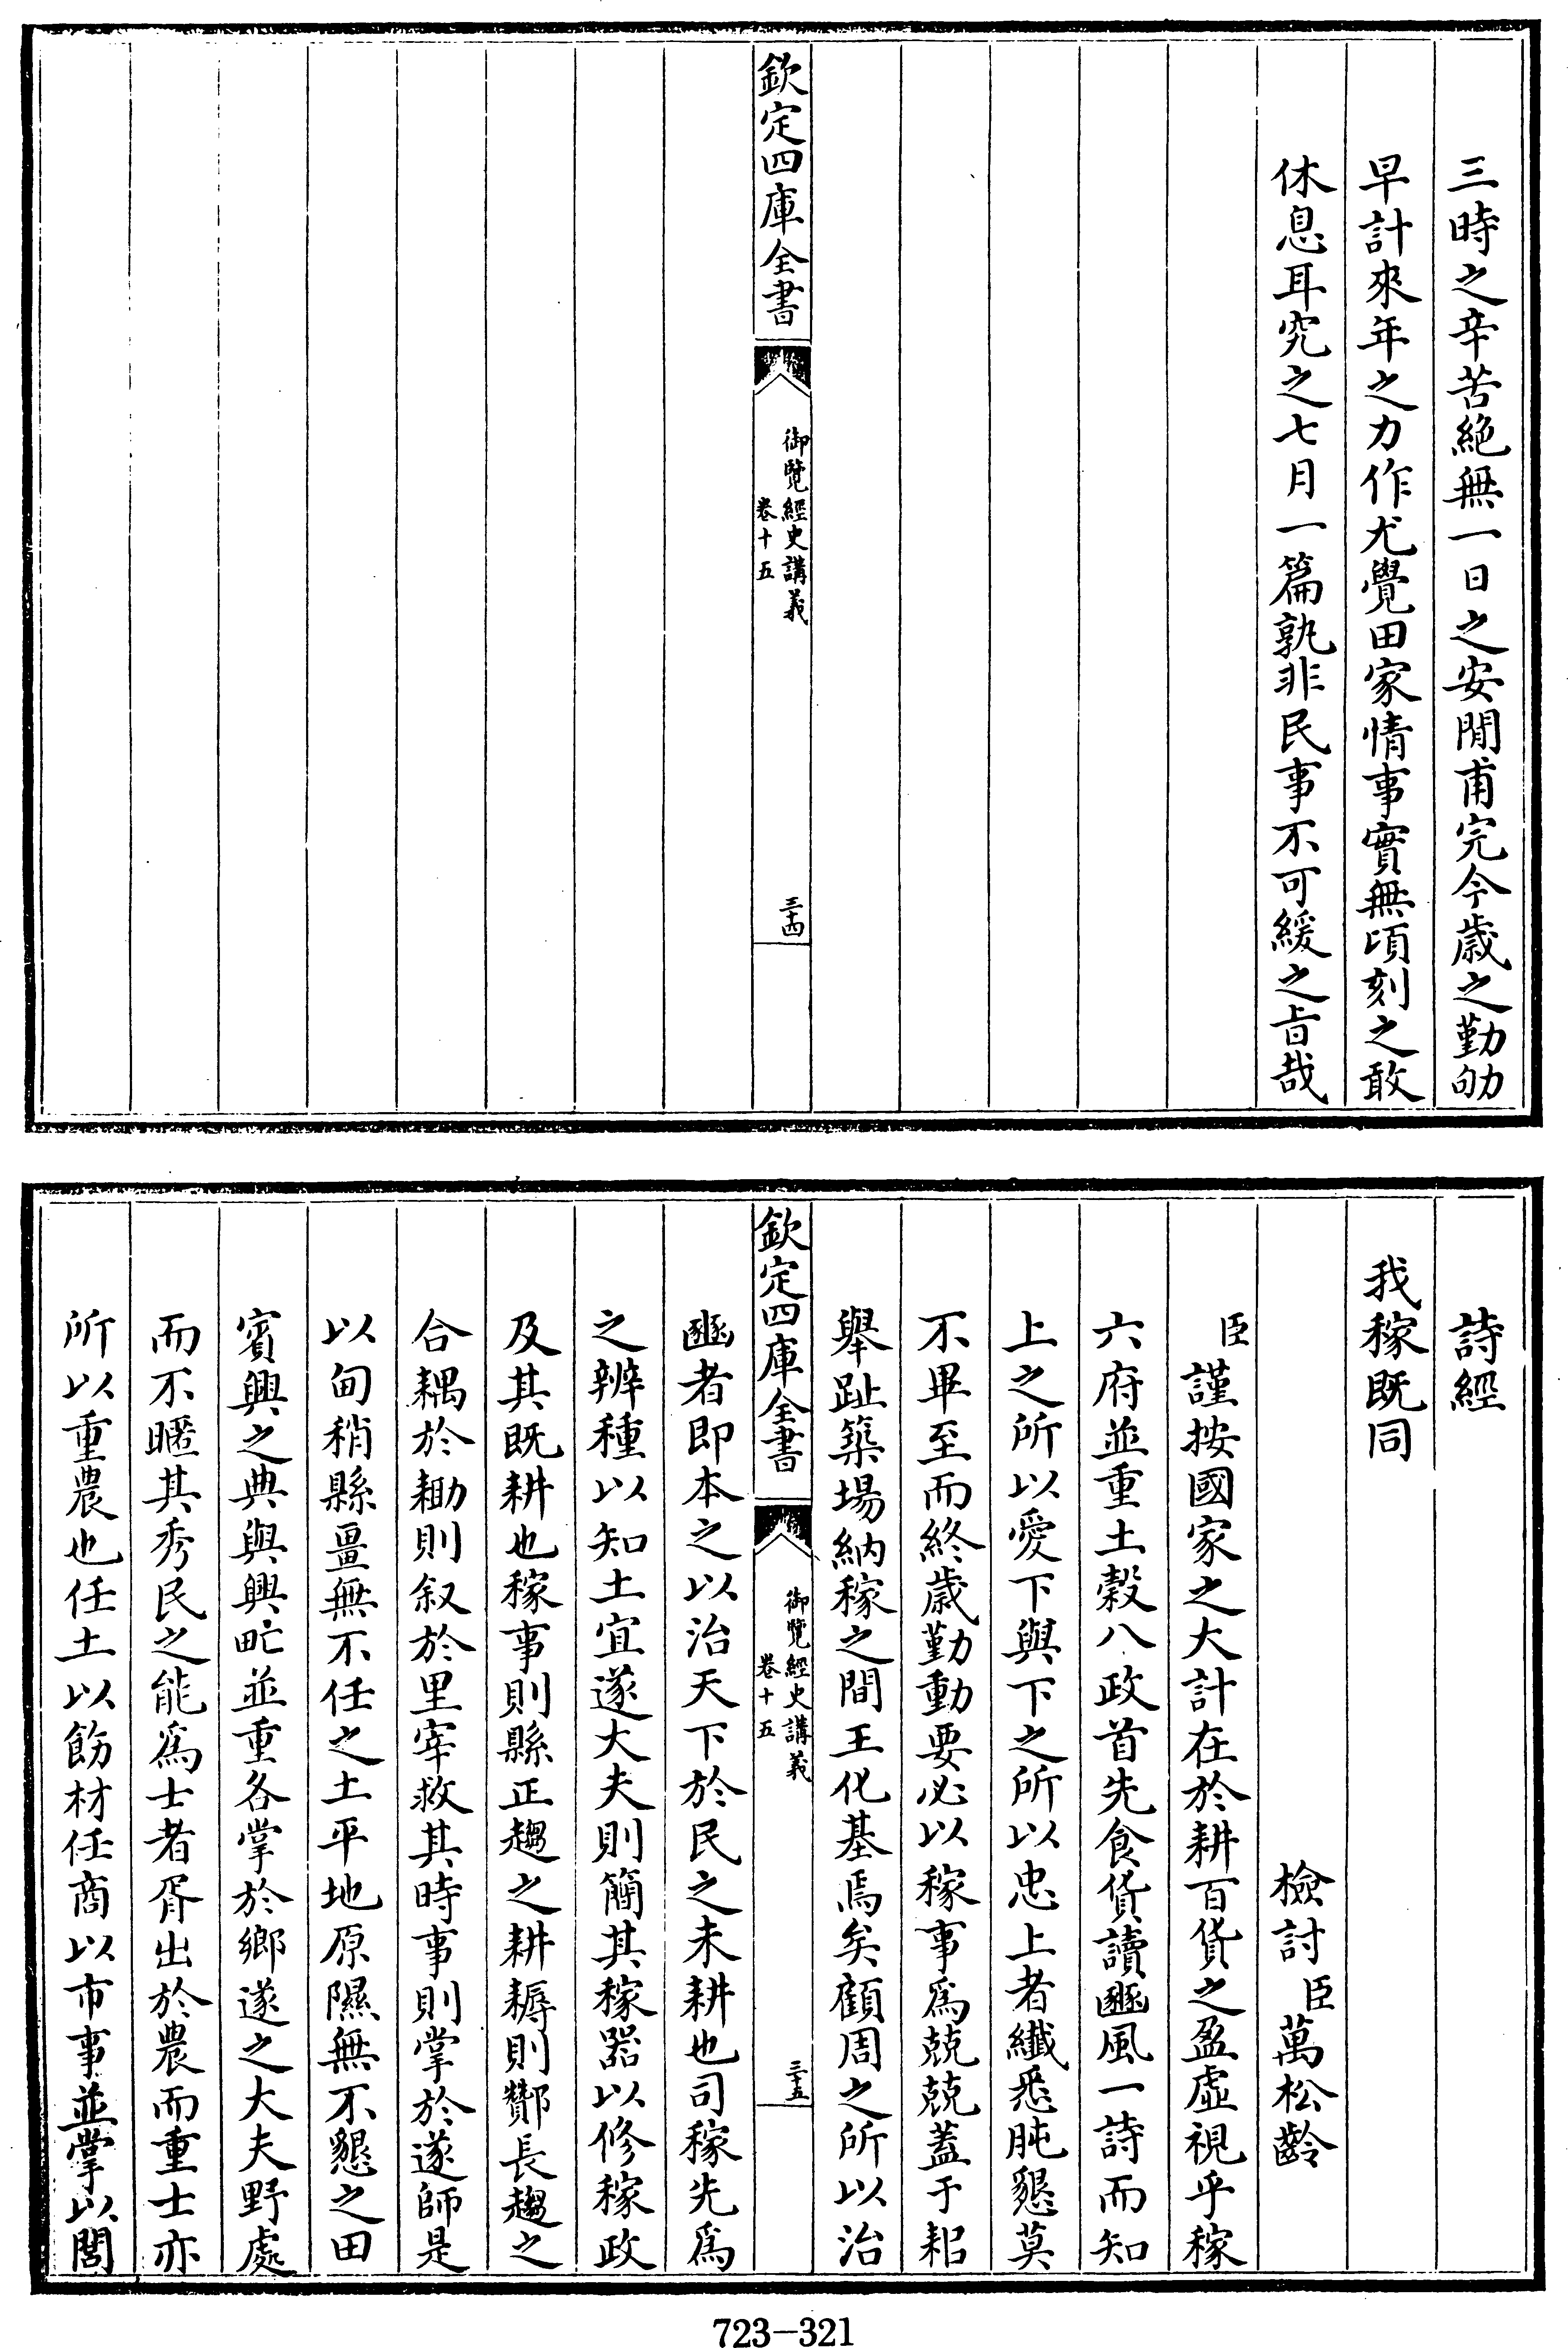 三時之辛苦絶無一日之安閒甫完今歲之勤劬
早計來年之力作尤覺田家情事實無頃刻之敢
休息耳究之七月一篇孰非民事不可緩之旨哉
欽定四庫全書
御覽經史講義
卷十五
三十四
詩經
我稼既同
檢討臣萬松齡
臣謹按國家之大計在於耕百貨之盈虛視乎稼
六府並重土穀八政首先食貨讀豳風一詩而知
上之所以愛下與下之所以忠上者纖悉肫懇莫
不畢至而終歲勤動要必以稼事爲兢兢蓋于耜
舉趾築場納稼之間王化基焉矣顧周之所以治
欽定四庫全書
御覽經史講義
卷十五
三十五
豳者即本之以治天下於民之未耕也司稼先爲
之辨種以知土宜遂大夫則簡其稼器以修稼政
及其既耕也稼事則縣正趨之耕耨則酇長趨之
合耦於耡則叙於里宰救其時事則掌於遂師是
以甸稍縣畺無不任之土平地原隰無不懇之田
賓興之典與興甿並重各掌於鄉遂之大夫野處
而不暱其秀民之能爲士者胥出於農而重士亦
所以重農也任土以飭材任商以市事並掌以閭
723-321